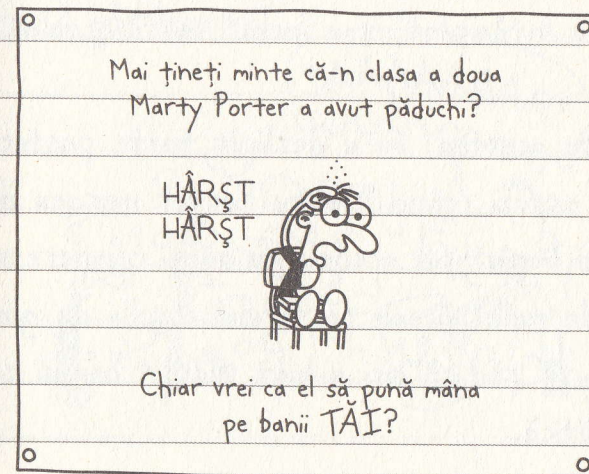 Mai țineți minte că-n clasa a doua
Marty Porter a avut păduchi?
HÂRȘT
HÂRȘT
Chiar vrei ca el să pună mâna
pe banii TĂI?